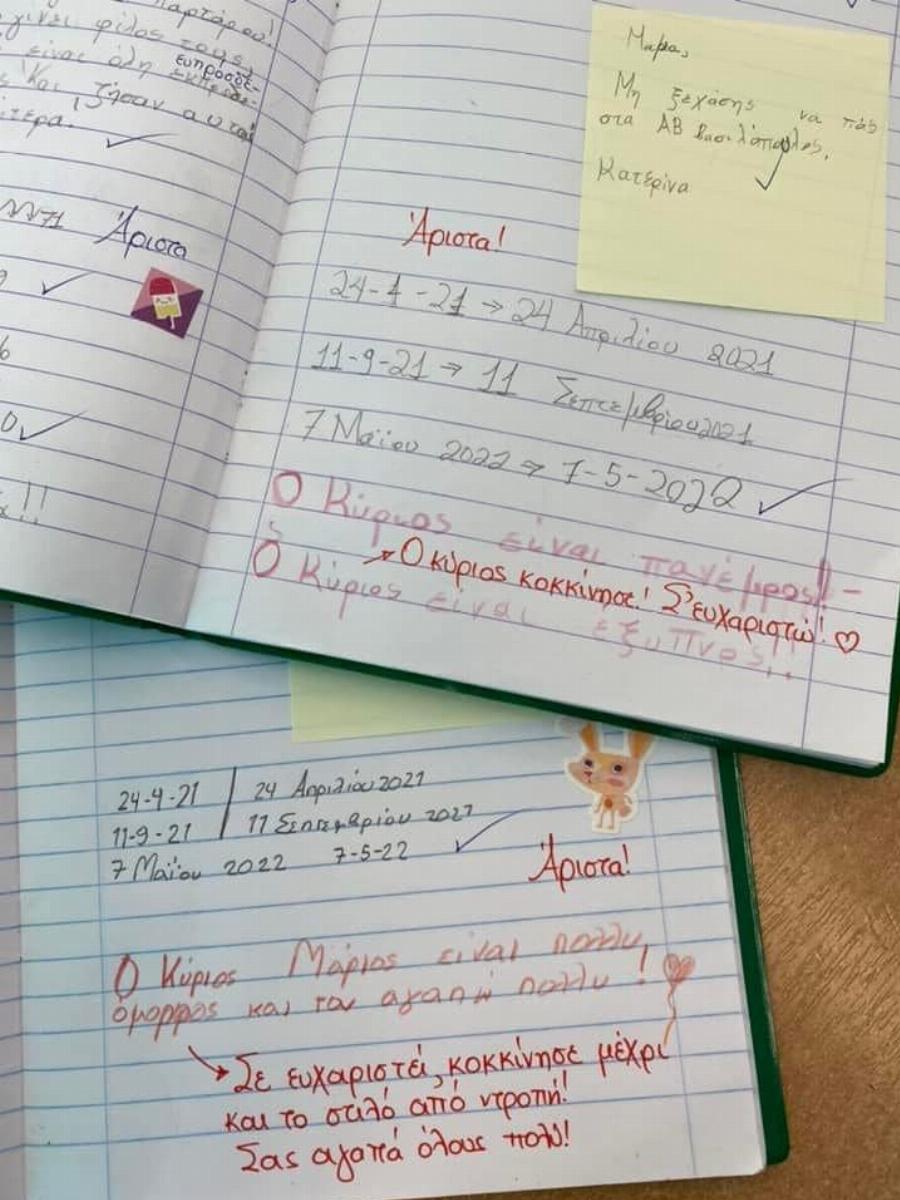 γίνει φίλος τους,
είναι όλη ευπροσδέ-
Και ζήσαν αυτοί
Άριστα
Μαμα,
Μη ξεχάσης να πάς
στα ΑΒ Βασιλόπουλος.
Κατερίνα
Άριστα!
24-4-21 → 24 Απριλίου 2021
11-9-21 → 11 Σεπτεμβρίου 2021
7 Μαϊου 2022 → 7-5-2022
Ο Κύριος είναι πανέμροs!!-
→ Ο κύριος κοκκίνησε! Σ'ευχαριστώ! ♡
Ο Κύριος είναι έξυπνος!!
24-4-21 | 24 Απριλίου 2021
11-9-21 | 11 Σεπτεμβρίου 2021
7 Μαϊου 2022 7-5-22
Άριστα!
Ο Κύριος Μάριος είναι πολλυ
όμορρος και τον αγαπώ πολλυ!
→ Σε ευχαριστεί, κοκκίνησε μέχρι
και το στιλό από ντροπή!
Σας αγαπά όλους πολύ!